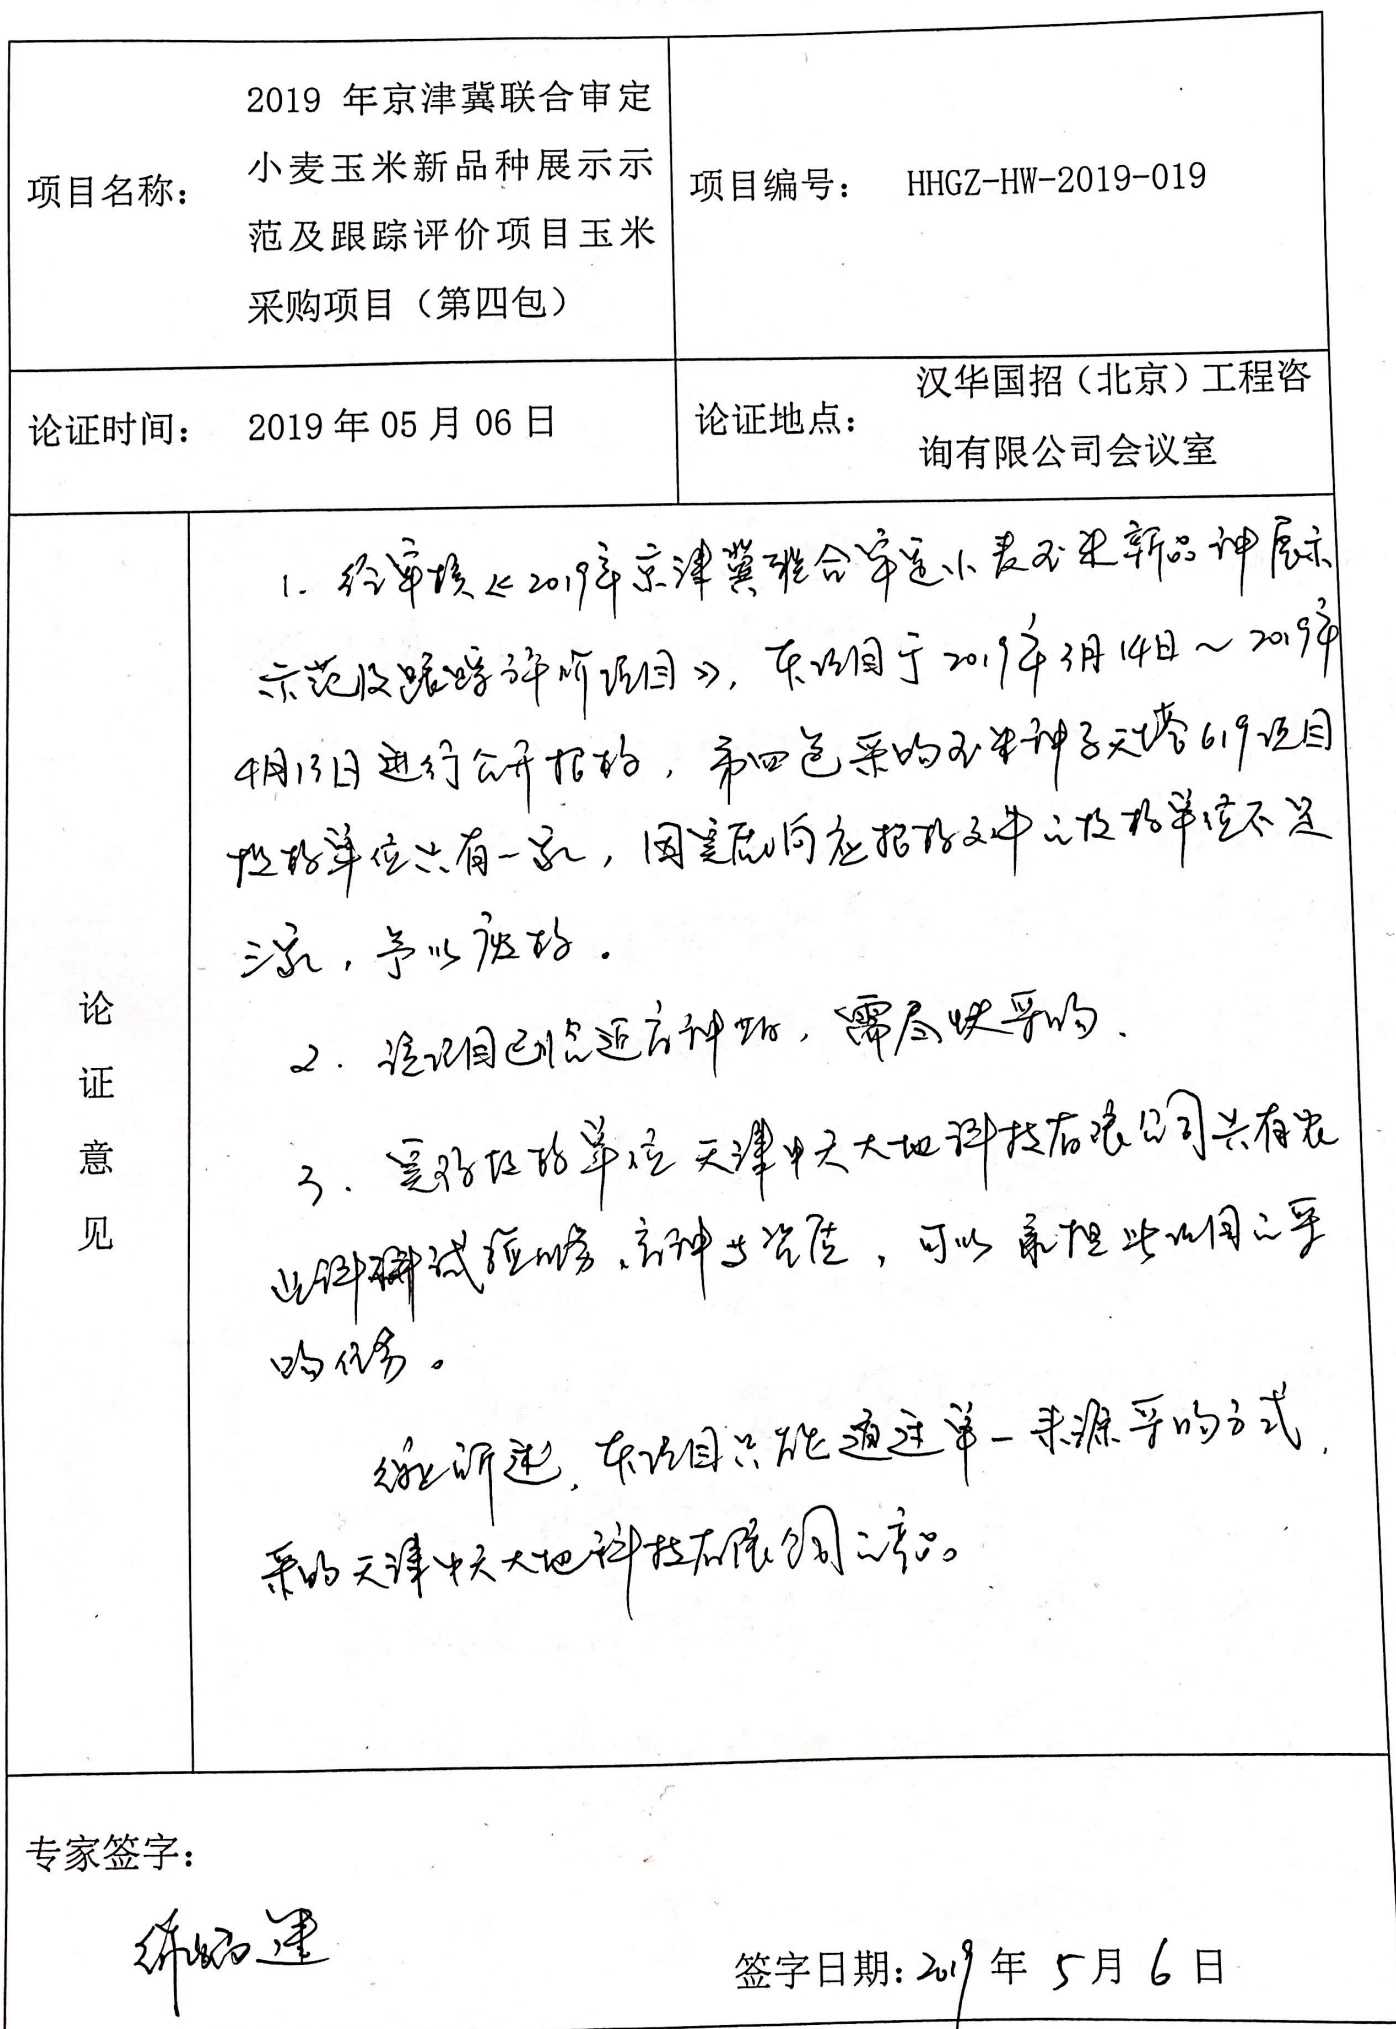 项目名称：
2019 年京津冀联合审定
小麦玉米新品种展示示
范及跟踪评价项目玉米
采购项目（第四包）
项目编号： HHGZ-HW-2019-019
论证时间： 2019 年 05 月 06 日
论证地点：
汉华国招（北京）工程咨
询有限公司会议室
论证意见
1. 经审核《2019年京津冀联合审定小麦玉米新品种展示
示范及跟踪评价项目》，本项目于2019年3月14日～2019年
4月13日进行公开招标，第四包采购玉米种子天塔619项目
投标单位只有一家，因实质响应招标文件之投标单位不足
三家，予以废标。
2. 该项目已临近播种期，需尽快采购.
3. 投标单位天津中天大地科技有限公司具有农
业科研试验，可以承担此项目之采
购任务。
综上所述，本项目只能通过单一来源采购方式，
采购天津中天大地科技有限公司之产品。
专家签字：
签字日期：2019 年 5 月 6 日